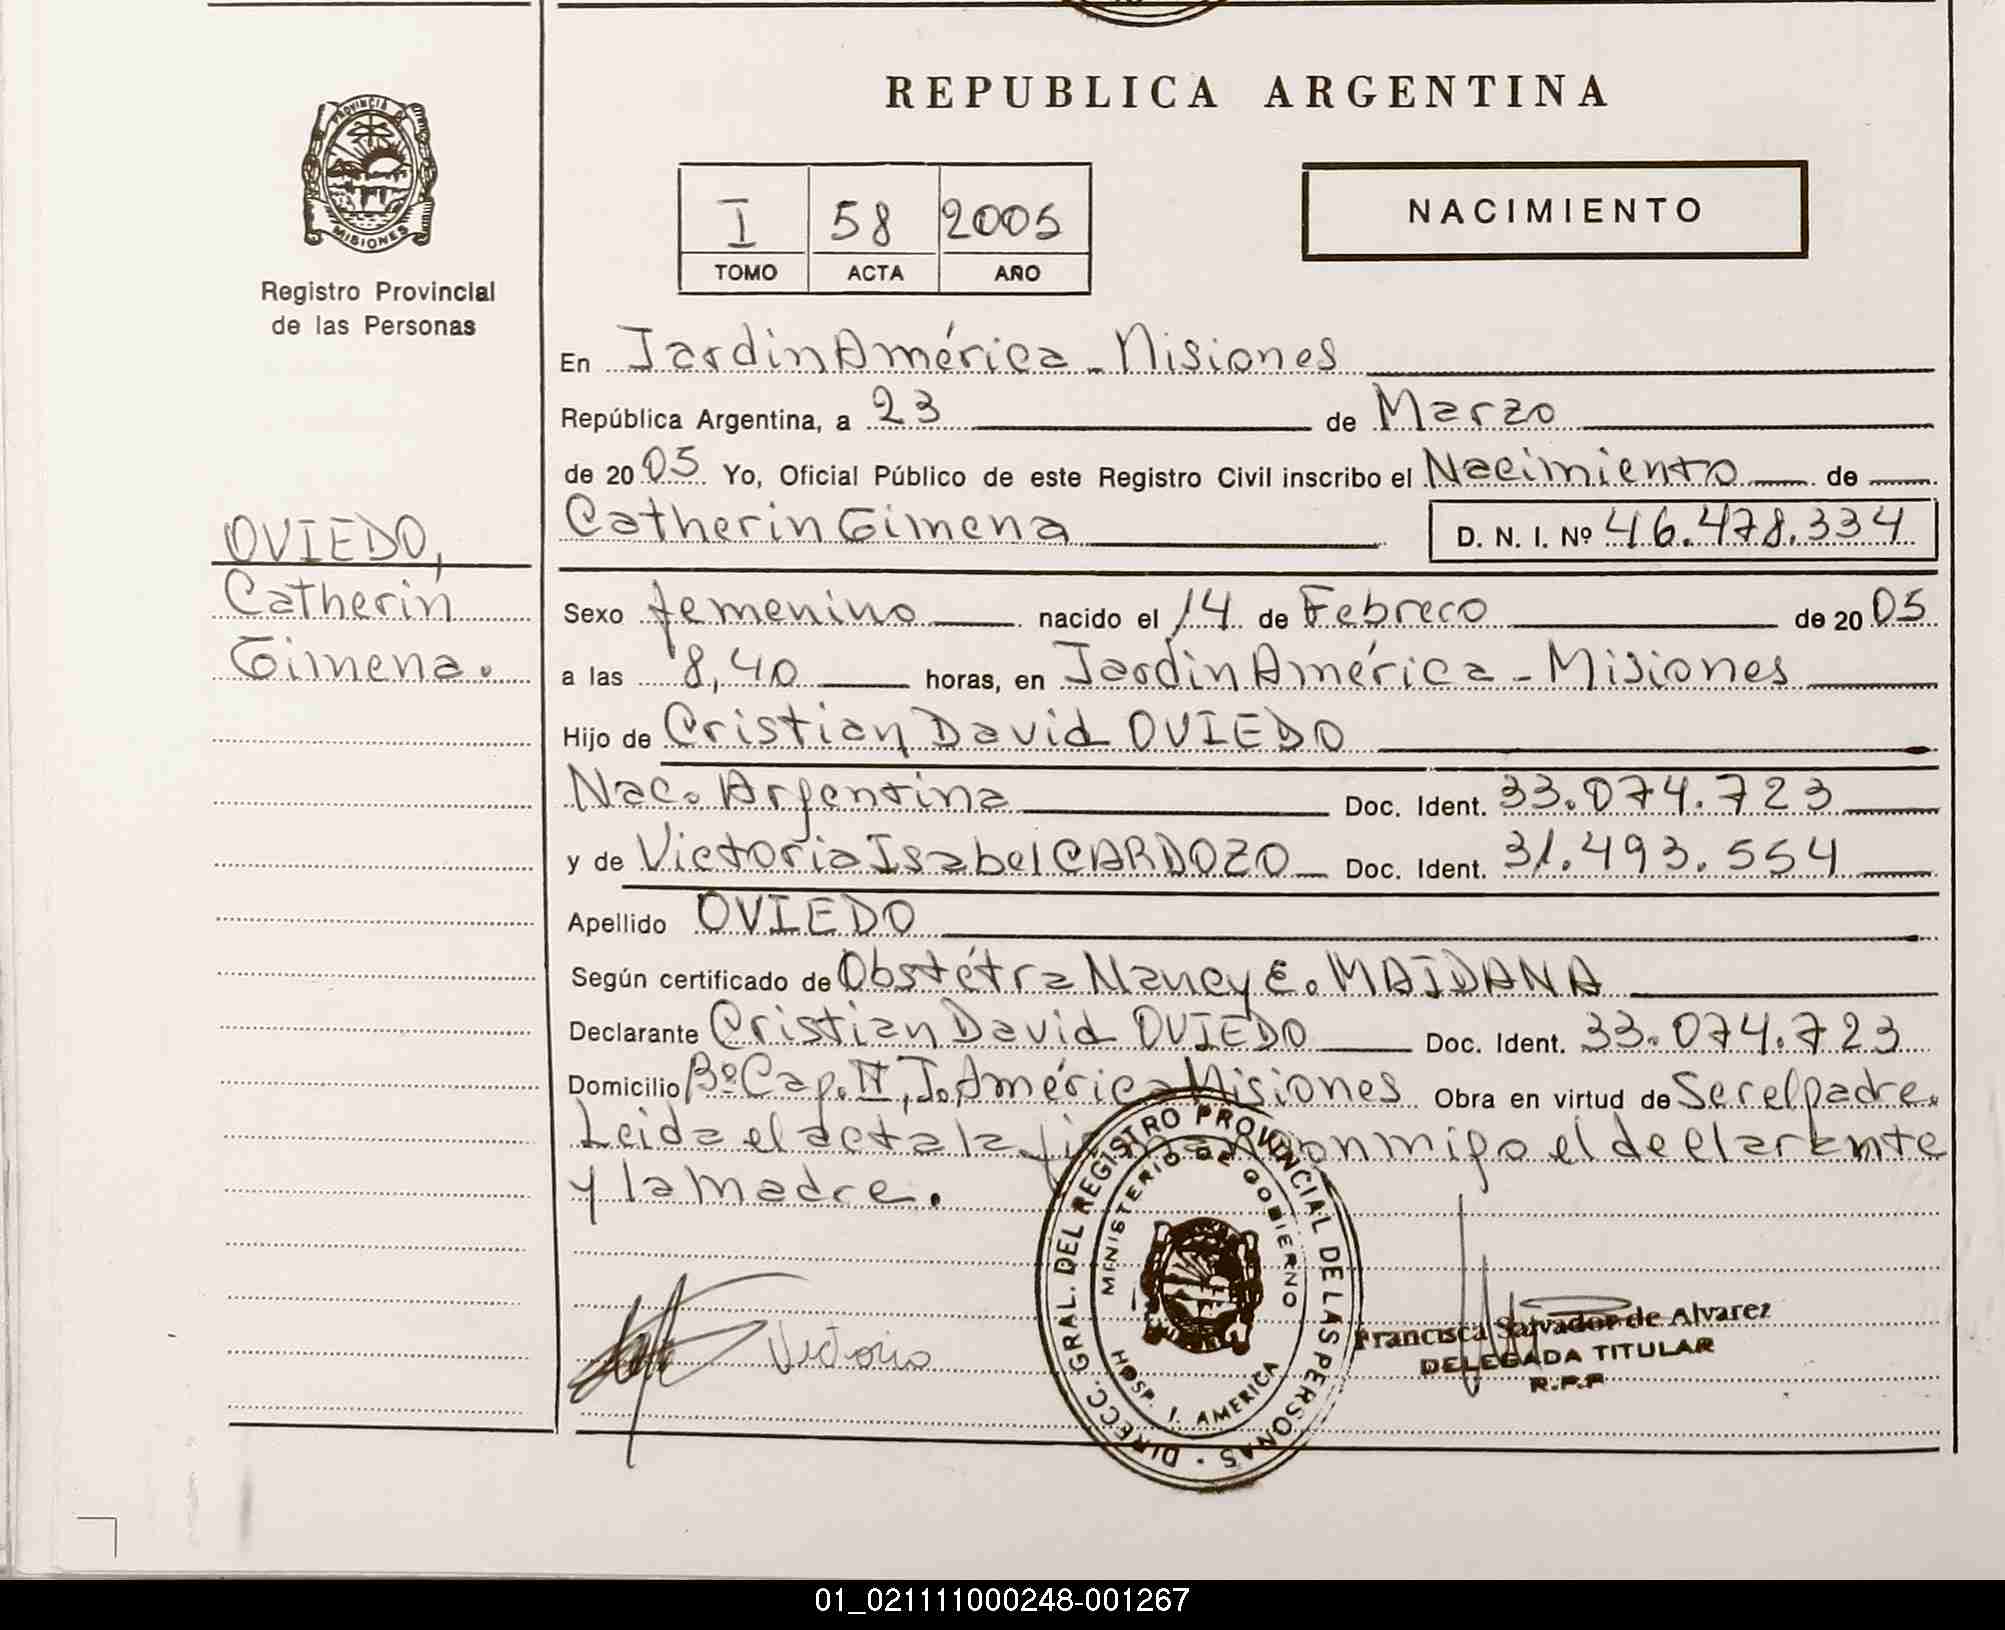 REPUBLICA ARGENTINA
PROVINCIA DE
MISIONES
Registro Provincial
de las Personas
I 58 2005
TOMO ACTA AÑO
NACIMIENTO
OVIEDO,
Catherin
Gimena.
En Jardin América - Misiones
República Argentina, a 23 de Marzo
de 2005 Yo, Oficial Público de este Registro Civil inscribo el Nacimiento de
Catherin Gimena D. N. I. Nº 46.478.334
Sexo femenino nacido el 14 de Febrero de 2005
a las 8,40 horas, en Jardin América - Misiones
Hijo de Cristian David OVIEDO
Nac. Argentina Doc. Ident. 33.074.723
y de Victoria Isabel CARDOZO Doc. Ident. 31.493.554
Apellido OVIEDO
Según certificado de Obstétra Nancy E. MAIDANA
Declarante Cristian David OVIEDO Doc. Ident. 33.074.723
Domicilio Bº Cap. II, J. América Misiones Obra en virtud de Ser el padre.
Leida el acta la firman conmigo el declarante
y la madre.
DIRECC. GRAL. DEL REGISTRO PROVINCIAL DE LAS PERSONAS
MINISTERIO DE GOBIERNO
HOSP. J. AMERICA
Victoria
Francisca Salvador de Alvarez
DELEGADA TITULAR
R.P.P
01_021111000248-001267